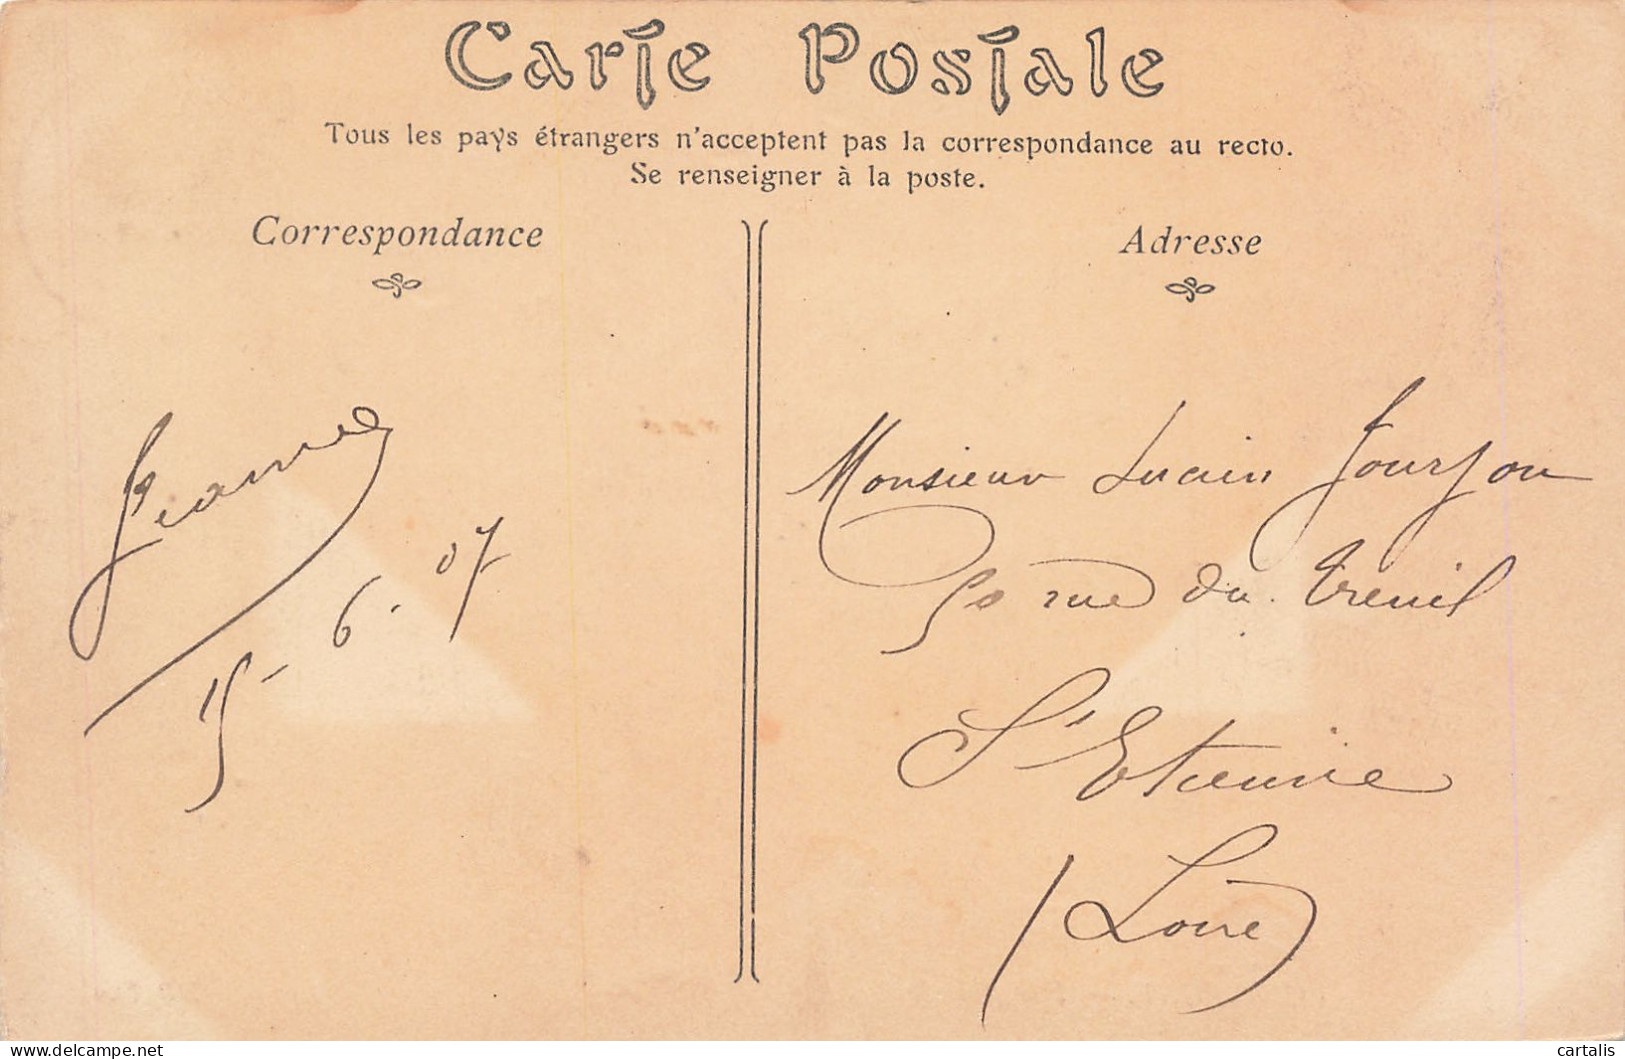 Carte Postale
Tous les pays étrangers n'acceptent pas la correspondance au recto.
Se renseigner à la poste.
Correspondance
Adresse
Jeanne
15-6-07
Monsieur Lucien Jourjon
50 rue du Treuil
St Etienne
(Loire)
© www.delcampe.net
cartalis